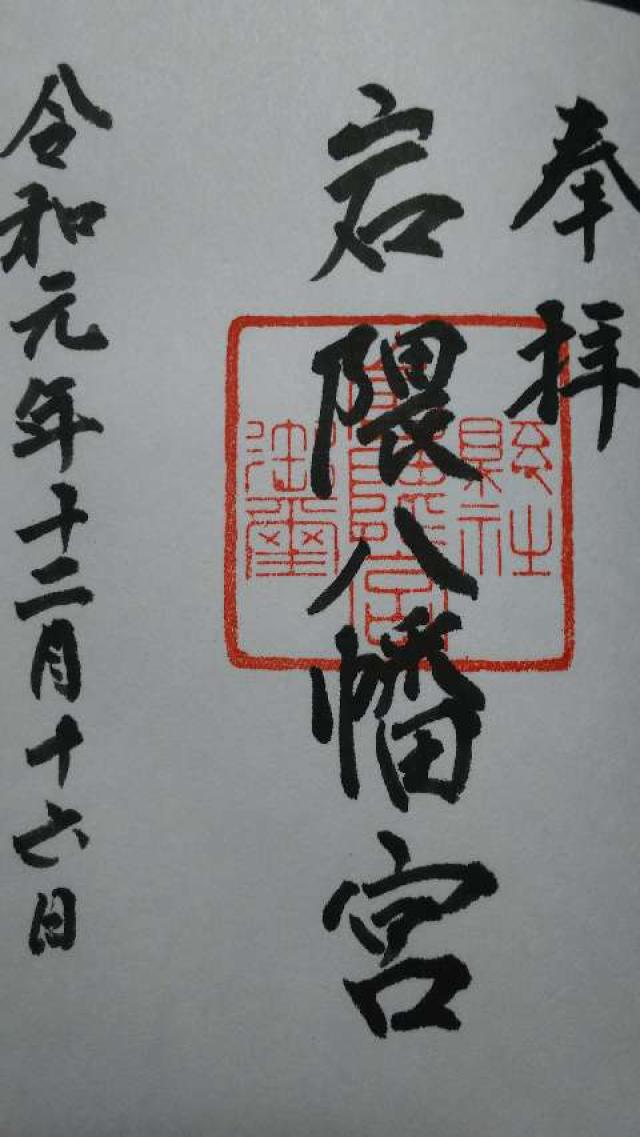 奉拝
岩隈八幡宮
縣社
御璽
令和元年十二月十六日